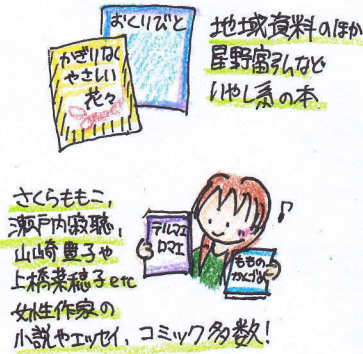 おくりびと
かぎりなく
やさしい
花々
地域資料のほか
星野富弘など
いやし系の本
さくらももこ、
瀬戸内寂聴、
山崎豊子や
上橋菜穂子etc
女性作家の
小説やエッセイ、コミック多数!
テルマエ
ロマエ
ももの
かんづめ